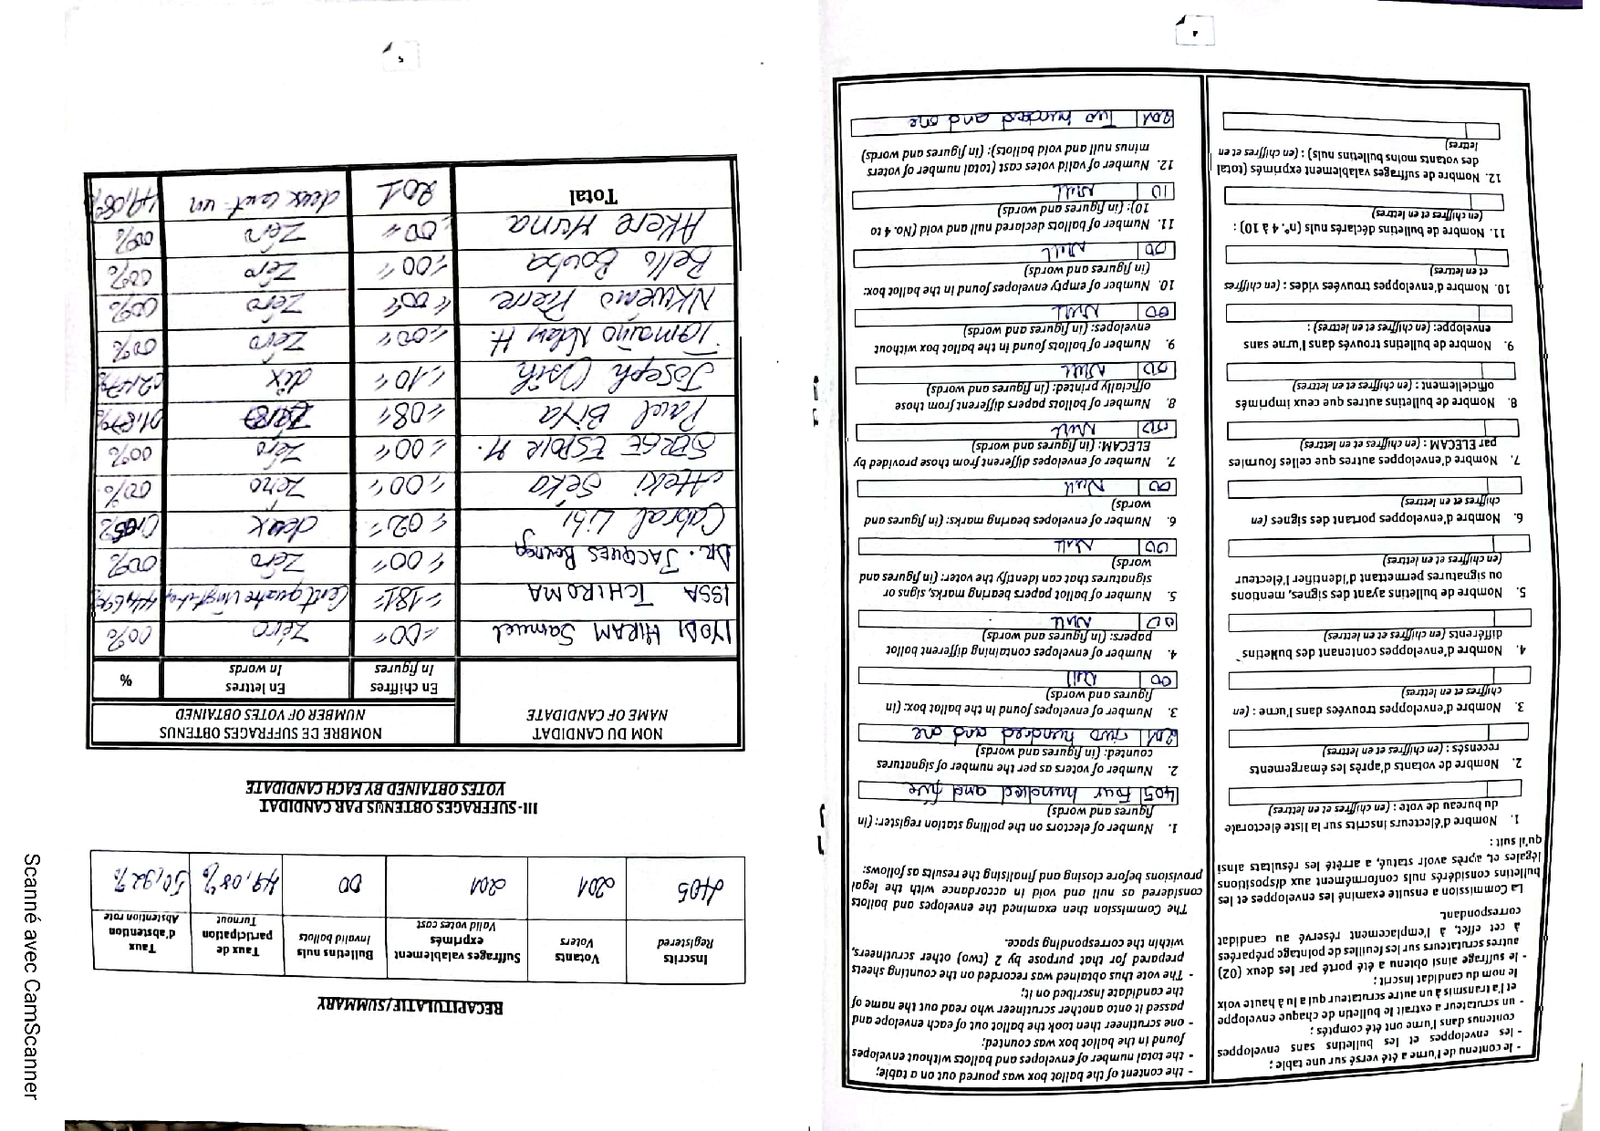 4
- le contenu de l'urne a été versé sur une table ;
- les enveloppes et les bulletins sans enveloppes
contenus dans l'urne ont été comptés ;
- un scrutateur a extrait le bulletin de chaque enveloppe
et l'a transmis à un autre scrutateur qui a lu à haute voix
le nom du candidat inscrit ;
- le suffrage ainsi obtenu a été porté par les deux (02)
autres scrutateurs sur les feuilles de pointage préparées
à cet effet, à l'emplacement réservé au candidat
correspondant.
La Commission a ensuite examiné les enveloppes et les
bulletins considérés nuls conformément aux dispositions
légales et, après avoir statué, a arrêté les résultats ainsi
qu'il suit :
1. Nombre d'électeurs inscrits sur la liste électorale
du bureau de vote : (en chiffres et en lettres)
2. Nombre de votants d'après les émargements
recensés : (en chiffres et en lettres)
3. Nombre d'enveloppes trouvées dans l'urne : (en
chiffres et en lettres)
4. Nombre d'enveloppes contenant des bulletins
différents (en chiffres et en lettres)
5. Nombre de bulletins ayant des signes, mentions
ou signatures permettant d'identifier l'électeur
(en chiffres et en lettres)
6. Nombre d'enveloppes portant des signes (en
chiffres et en lettres)
7. Nombre d'enveloppes autres que celles fournies
par ELECAM : (en chiffres et en lettres)
8. Nombre de bulletins autres que ceux imprimés
officiellement : (en chiffres et en lettres)
9. Nombre de bulletins trouvés dans l'urne sans
enveloppe: (en chiffres et en lettres) :
10. Nombre d'enveloppes trouvées vides : (en chiffres
et en lettres)
11. Nombre de bulletins déclarés nuls (n°. 4 à 10) :
(en chiffres et en lettres)
12. Nombre de suffrages valablement exprimés (total
des votants moins bulletins nuls) : (en chiffres et en
lettres)
- the content of the ballot box was poured out on a table;
- the total number of envelopes and ballots without envelopes
found in the ballot box was counted;
- one scrutineer then took the ballot out of each envelope and
passed it onto another scrutineer who read out the name of
the candidate inscribed on it;
- The vote thus obtained was recorded on the counting sheets
prepared for that purpose by 2 (two) other scrutineers,
within the corresponding space.
The Commission then examined the envelopes and ballots
considered as null and void in accordance with the legal
provisions before closing and finalising the results as follows:
1. Number of electors on the polling station register: (in
figures and words)
405 Four hundred and five
2. Number of voters as per the number of signatures
counted: (in figures and words)
201 Two hundred and one
3. Number of envelopes found in the ballot box: (in
figures and words)
00 Null
4. Number of envelopes containing different ballot
papers: (in figures and words)
00 Null
5. Number of ballot papers bearing marks, signs or
signatures that can identify the voter: (in figures and
words)
00 Null
6. Number of envelopes bearing marks: (in figures and
words)
00 Null
7. Number of envelopes different from those provided by
ELECAM: (in figures and words)
00 Null
8. Number of ballots papers different from those
officially printed: (in figures and words)
00 Null
9. Number of ballots found in the ballot box without
envelopes: (in figures and words)
00 Null
10. Number of empty envelopes found in the ballot box:
(in figures and words)
00 Null
11. Number of ballots declared null and void (No. 4 to
10): (in figures and words)
Null
12. Number of valid votes cast (total number of voters
minus null and void ballots): (in figures and words)
201 Two hundred and one
5
RECAPITULATIF/SUMMARY
Inscrits Registered | Votants Voters | Suffrages valablement exprimés Valid votes cast | Bulletins nuls Invalid ballots | Taux de participation Turnout | Taux d'abstention Abstention rate
405 | 201 | 201 | 00 | 49,08% | 50,92%
III- SUFFRAGES OBTENUS PAR CANDIDAT
VOTES OBTAINED BY EACH CANDIDATE
NOM DU CANDIDAT NAME OF CANDIDATE | NOMBRE DE SUFFRAGES OBTENUS NUMBER OF VOTES OBTAINED
En chiffres In figures | En lettres In words | %
IYODI HIRAM Samuel | =00= | Zéro | 00%
ISSA TCHIROMA | =181= | Cent quatre vingt | 44,69%
DR. JACQUES Bouga | =00= | Zéro | 00%
Cabral Libi | =02= | deux
Ateki Seka | =00= | Zéro | 00%
SERGE ESPOIR M. | =00= | Zéro | 00%
Paul BIYA | =08=
Joseph Osih | =10= | dix
Tomaïno Ndam H. | =00= | Zéro | 00%
NKWEMO Pierre | =00= | Zéro | 00%
Bello Bouba | =00= | Zéro | 00%
Akere Muna | =00= | Zéro | 00%
Total | 201 | deux cent un | 49,08%
Scanné avec CamScanner